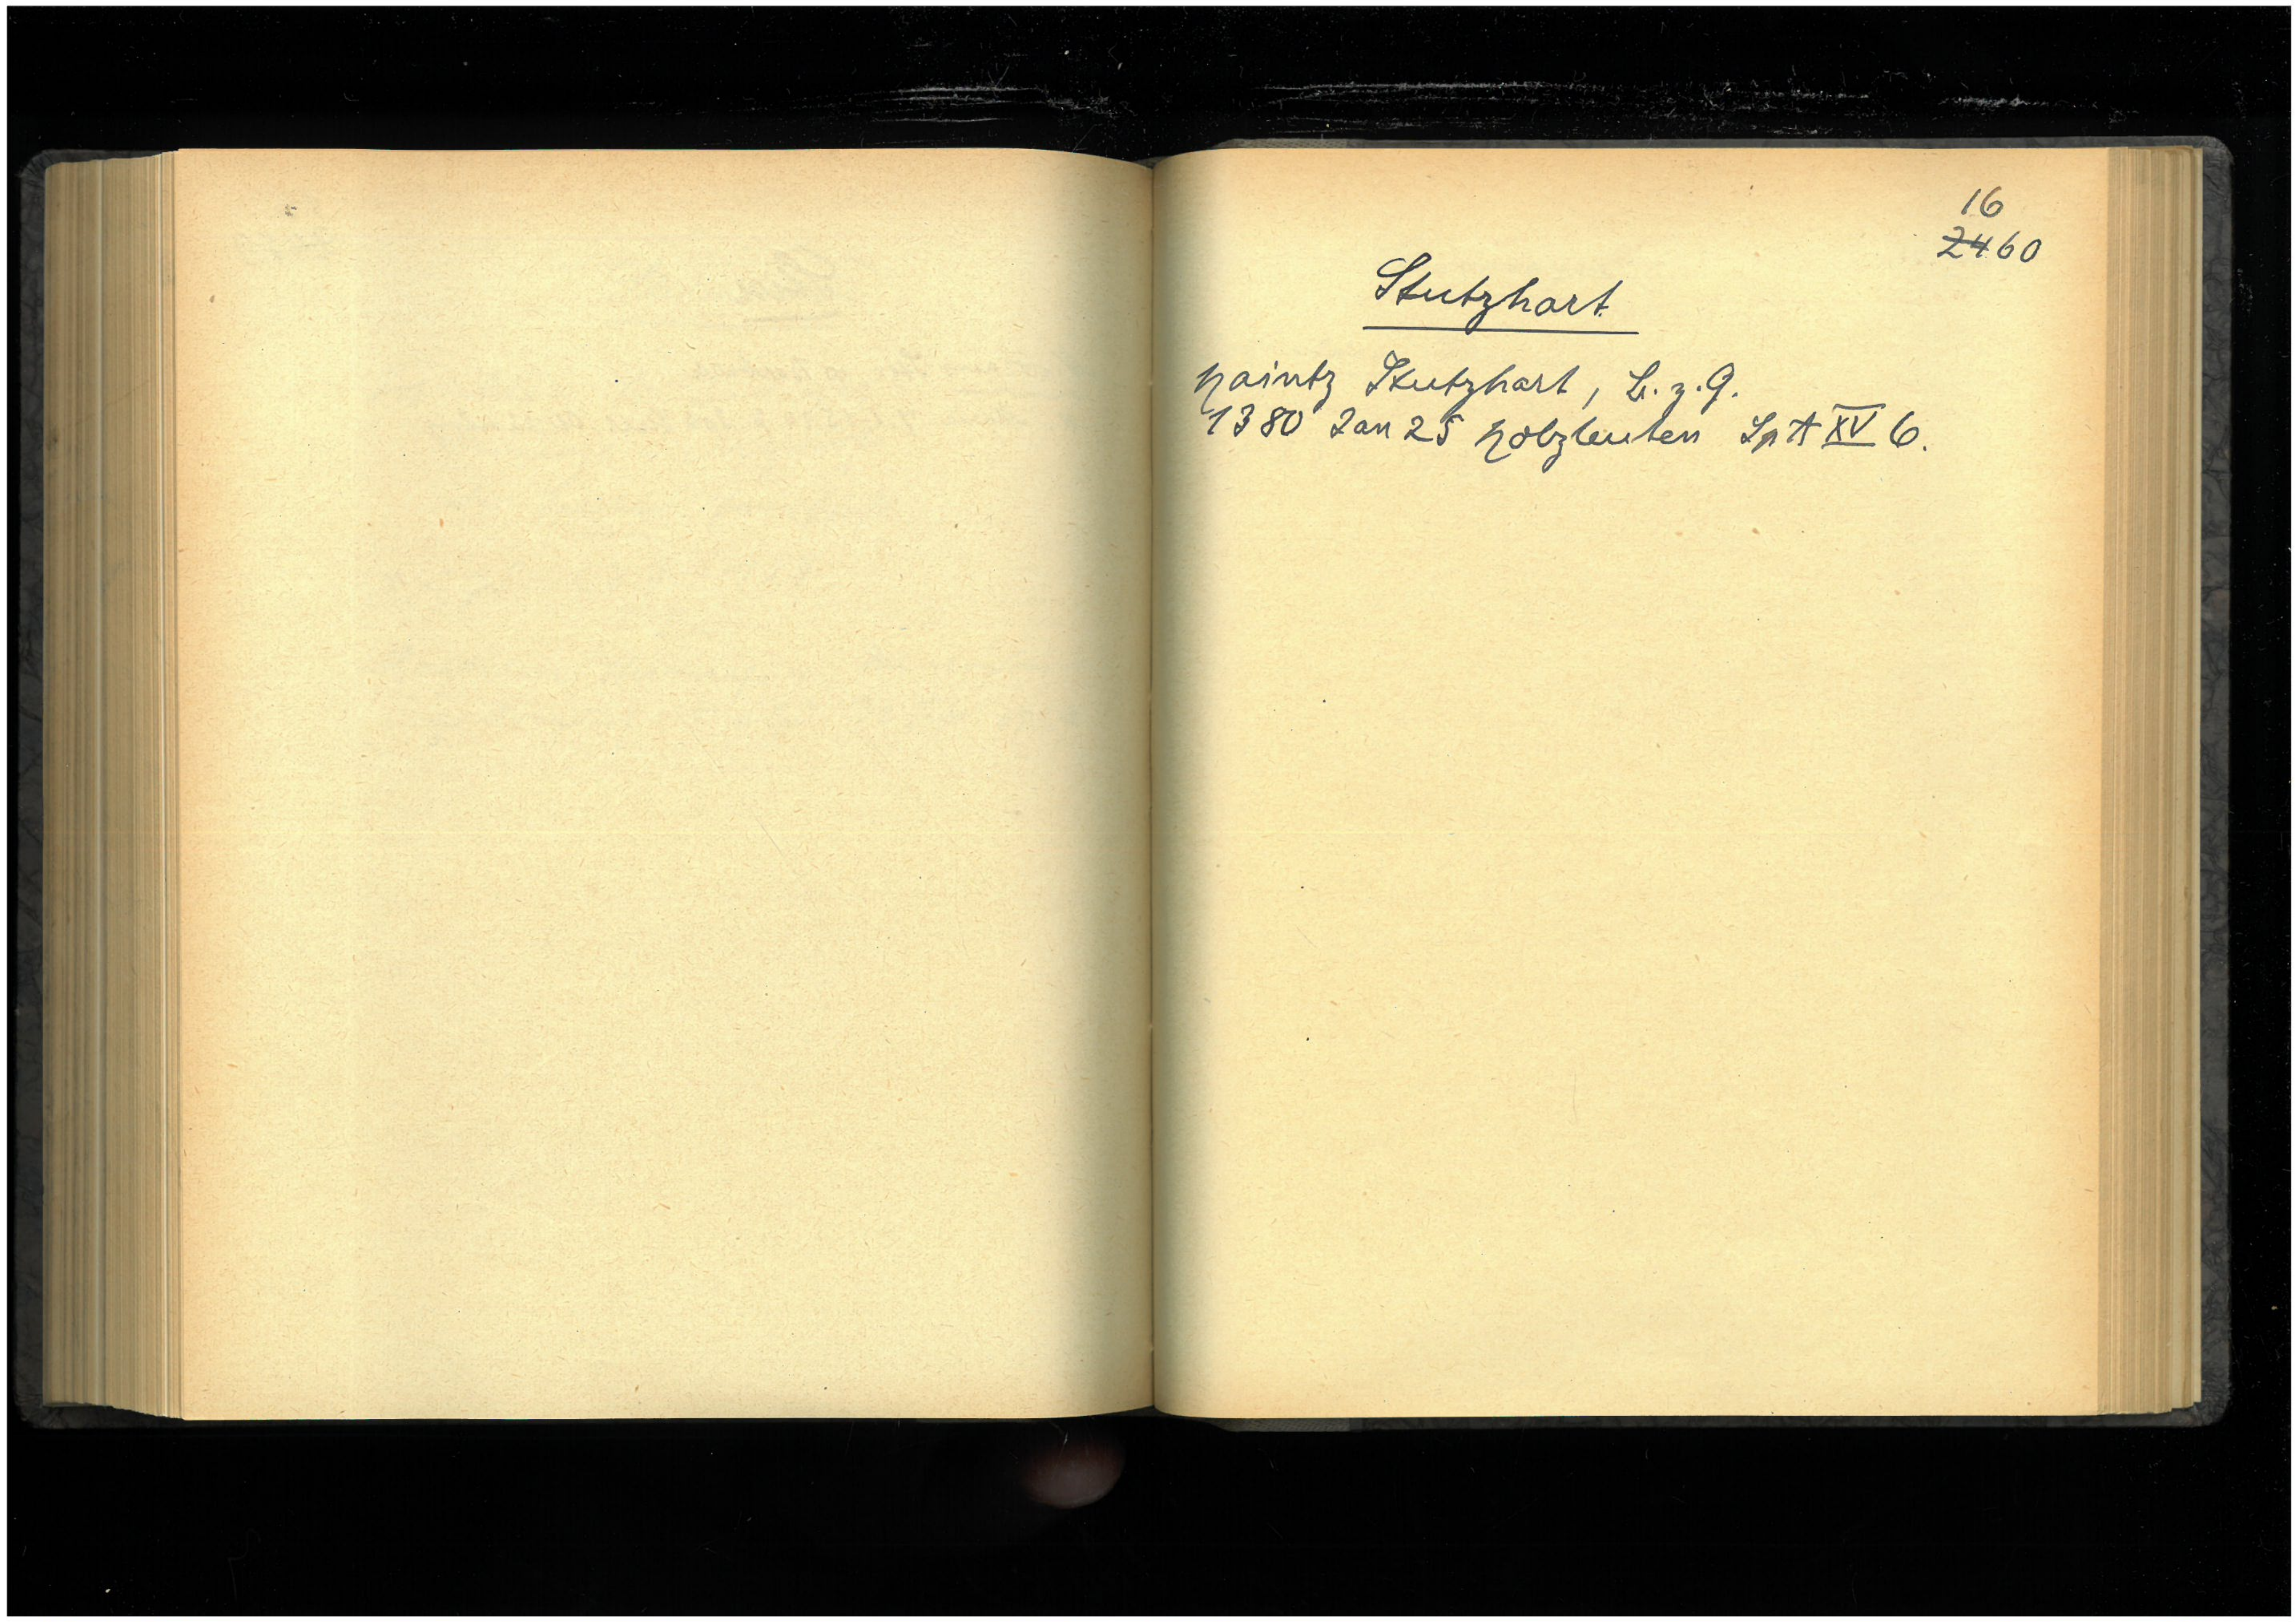 16
2460
Stutzhart
Haintz Stutzhart, B. z. G.
1380 Jan 25 Holzleuten Sp A XV 6.